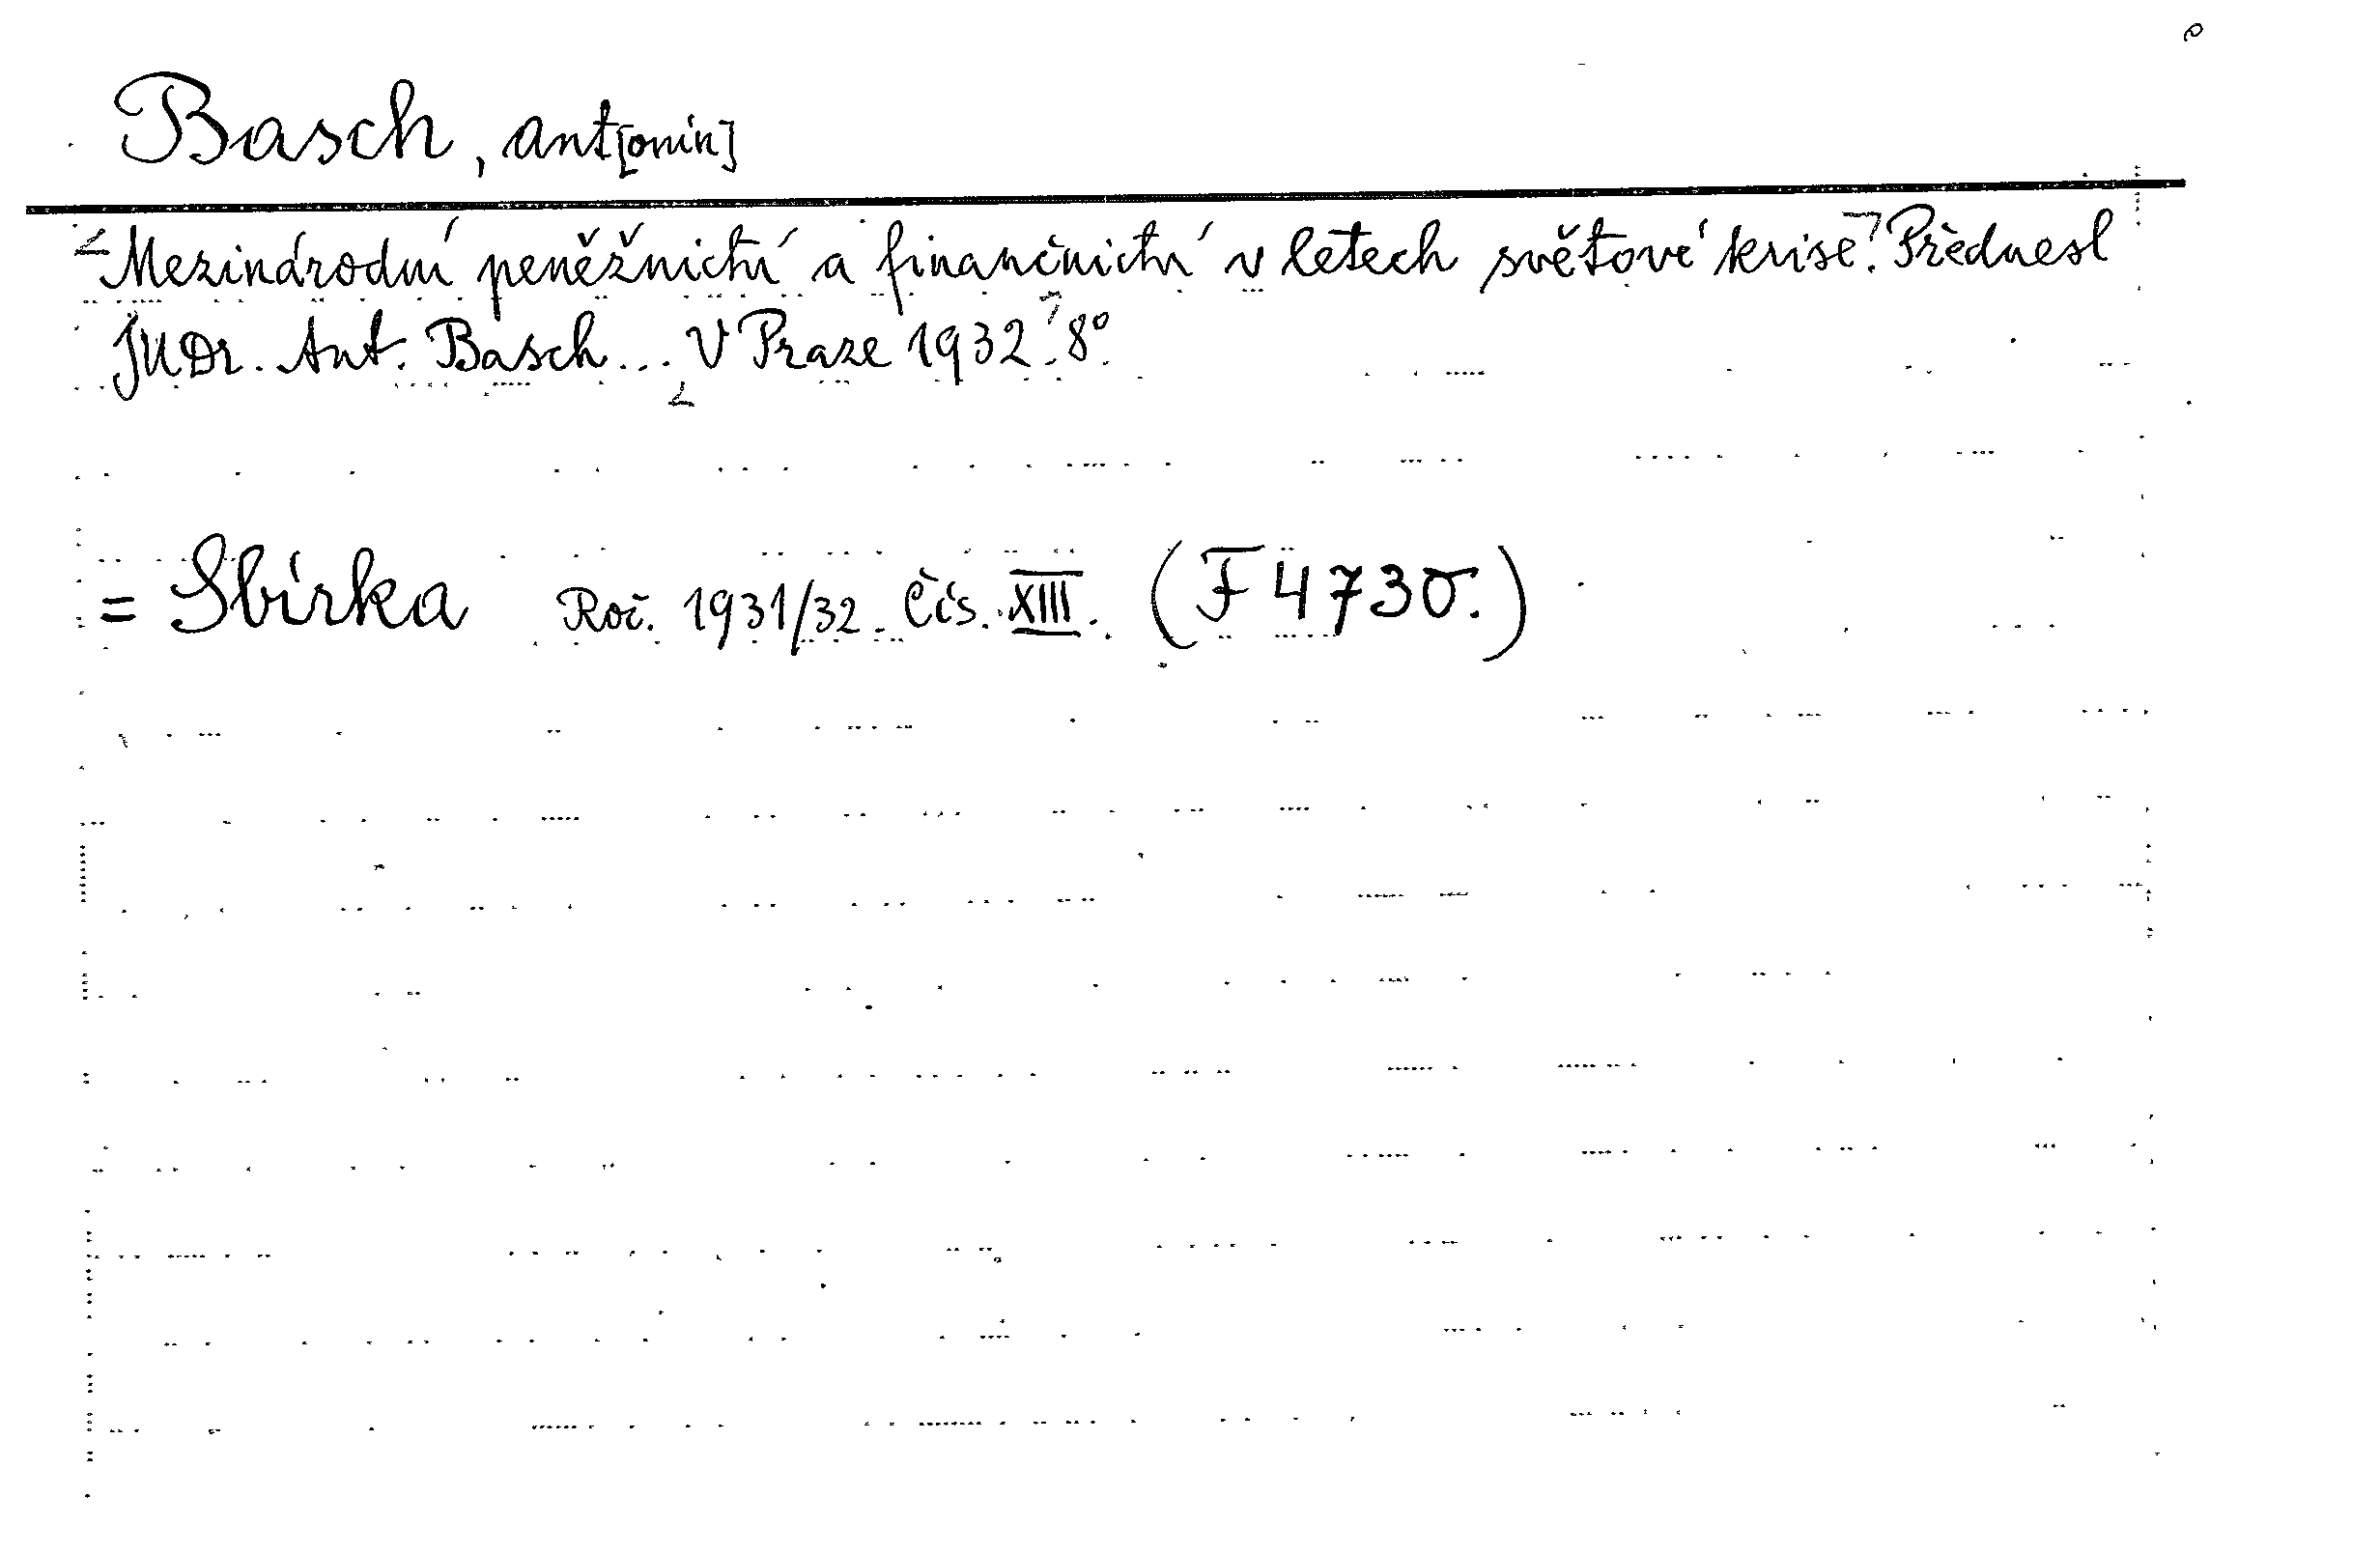 Basch, Ant[onín]
Mezinárodní peněžnictví a finančnictví v letech světové krise. Přednesl
JUDr. Ant. Basch... V Praze 1932. 8°.
= Sbírka Roč. 1931/32. Čís. XIII. (F 4730.)